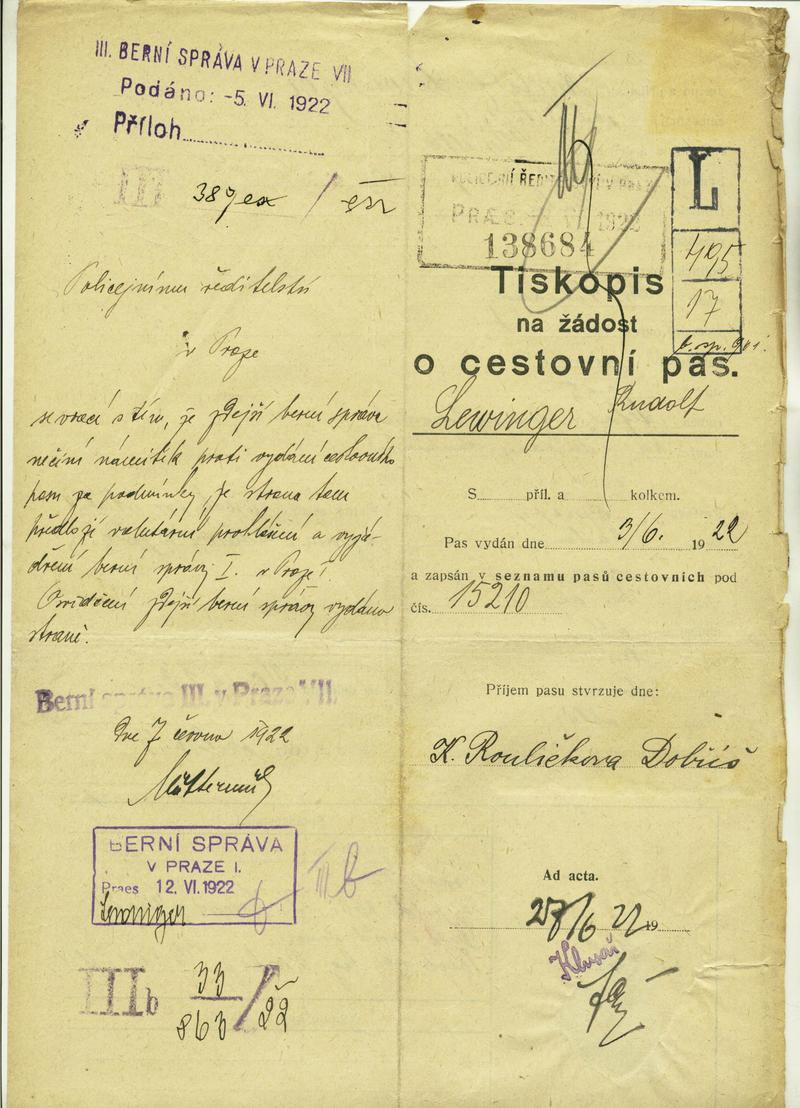 III. BERNÍ SPRÁVA V PRAZE VII
Podáno: -5. VI. 1922
Příloh
III
Policejnímu ředitelství
v Praze
se vrací s tím, že zdejší berní správa
nečiní námitek proti vydání cestovního
pasu za podmínky, že strana tam
předloží valutární prohlášení a vyjá-
dření berní správy I. v Praze.
Osvědčení zdejší berní správy vydáno
straně.
Berní správa III. v Praze VII.
Dne 7 června 1922
BERNÍ SPRÁVA
V PRAZE I.
Praes 12. VI. 1922
Lewinger
III b
IIIb 33
863 / 22
POLICEJNÍ ŘEDITELSTVÍ V PRAZE
PRAES. 1922
138684
L
495
17
Tiskopis
na žádost
o cestovní pas.
Lewinger Rudolf
S příl. a kolkem.
Pas vydán dne 3/6. 1922
a zapsán v seznamu pasů cestovních pod
čís. 15210
Příjem pasu stvrzuje dne:
K. Rouličkova Dobříš
Ad acta.
27/6 22 19